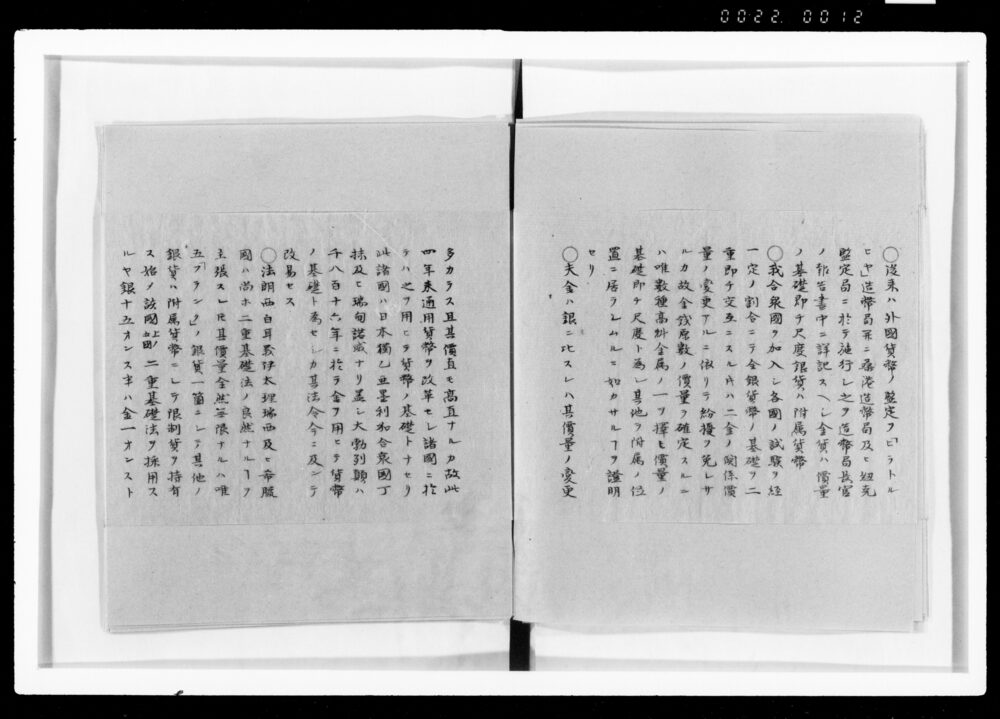 0022 0012
〇從来ハ外國貨幣ノ鑒定ヲ「ヒラトル
ヒヤ」造幣局并ニ桑港造幣局及ヒ紐克
鑒定局ニ於テ施行シ之ヲ造幣局長官
ノ報告書中ニ詳記スヘシ金貨ハ價量
ノ基礎即チ尺度銀貨ハ附属貨幣
〇我合衆國ヲ加入シ各國ノ試験ヲ経
一定ノ割合ニテ金銀貨幣ノ基礎ヲ二
重即チ交互ニスル片ハ二金ノ関係價
量ノ変更アルニ依リテ紛擾ヲ免レサ
ルカ故金銭層数ノ價量ヲ確定スルニ
ハ唯数種高料金属ノ一ヲ擇ヒ價量ノ
基礎即チ尺度ト為シ其他ヲ附属ノ位
置ニ居ラシムルニ如カサルヿヲ證明
セリ
〇夫金ハ銀ニ比スレハ其價量ノ変更
多カラス且其價直モ高直ナルカ故此
四年来通用貨幣ヲ改革セシ諸國ニ於
テハ之ヲ用ヒテ貨幣ノ基礎トナセリ
此諸國ハ日本獨乙亜墨利加合衆國丁
抹及ヒ瑞甸諾威ナリ蓋シ大勃列顛ハ
千八百十六年ニ於テ金ヲ用ヒテ貨幣
ノ基礎ト為セシカ其法令今ニ及ンテ
改易セス
〇法朗西白耳義伊太理瑞西及ヒ希臘
國ハ尚ホ二重基礎法ノ良然ナルヿヲ
主張スレ𪜈其價量全然無限ナルハ唯
五「フランク」ノ銀貨一箇ニシテ其他ノ
銀貨ハ附属貨幣ニシテ限制貨ヲ持有
ス始メ該國上五國二重基礎法ヲ採用ス
ルヤ銀十五オンス半ハ金一オンスト